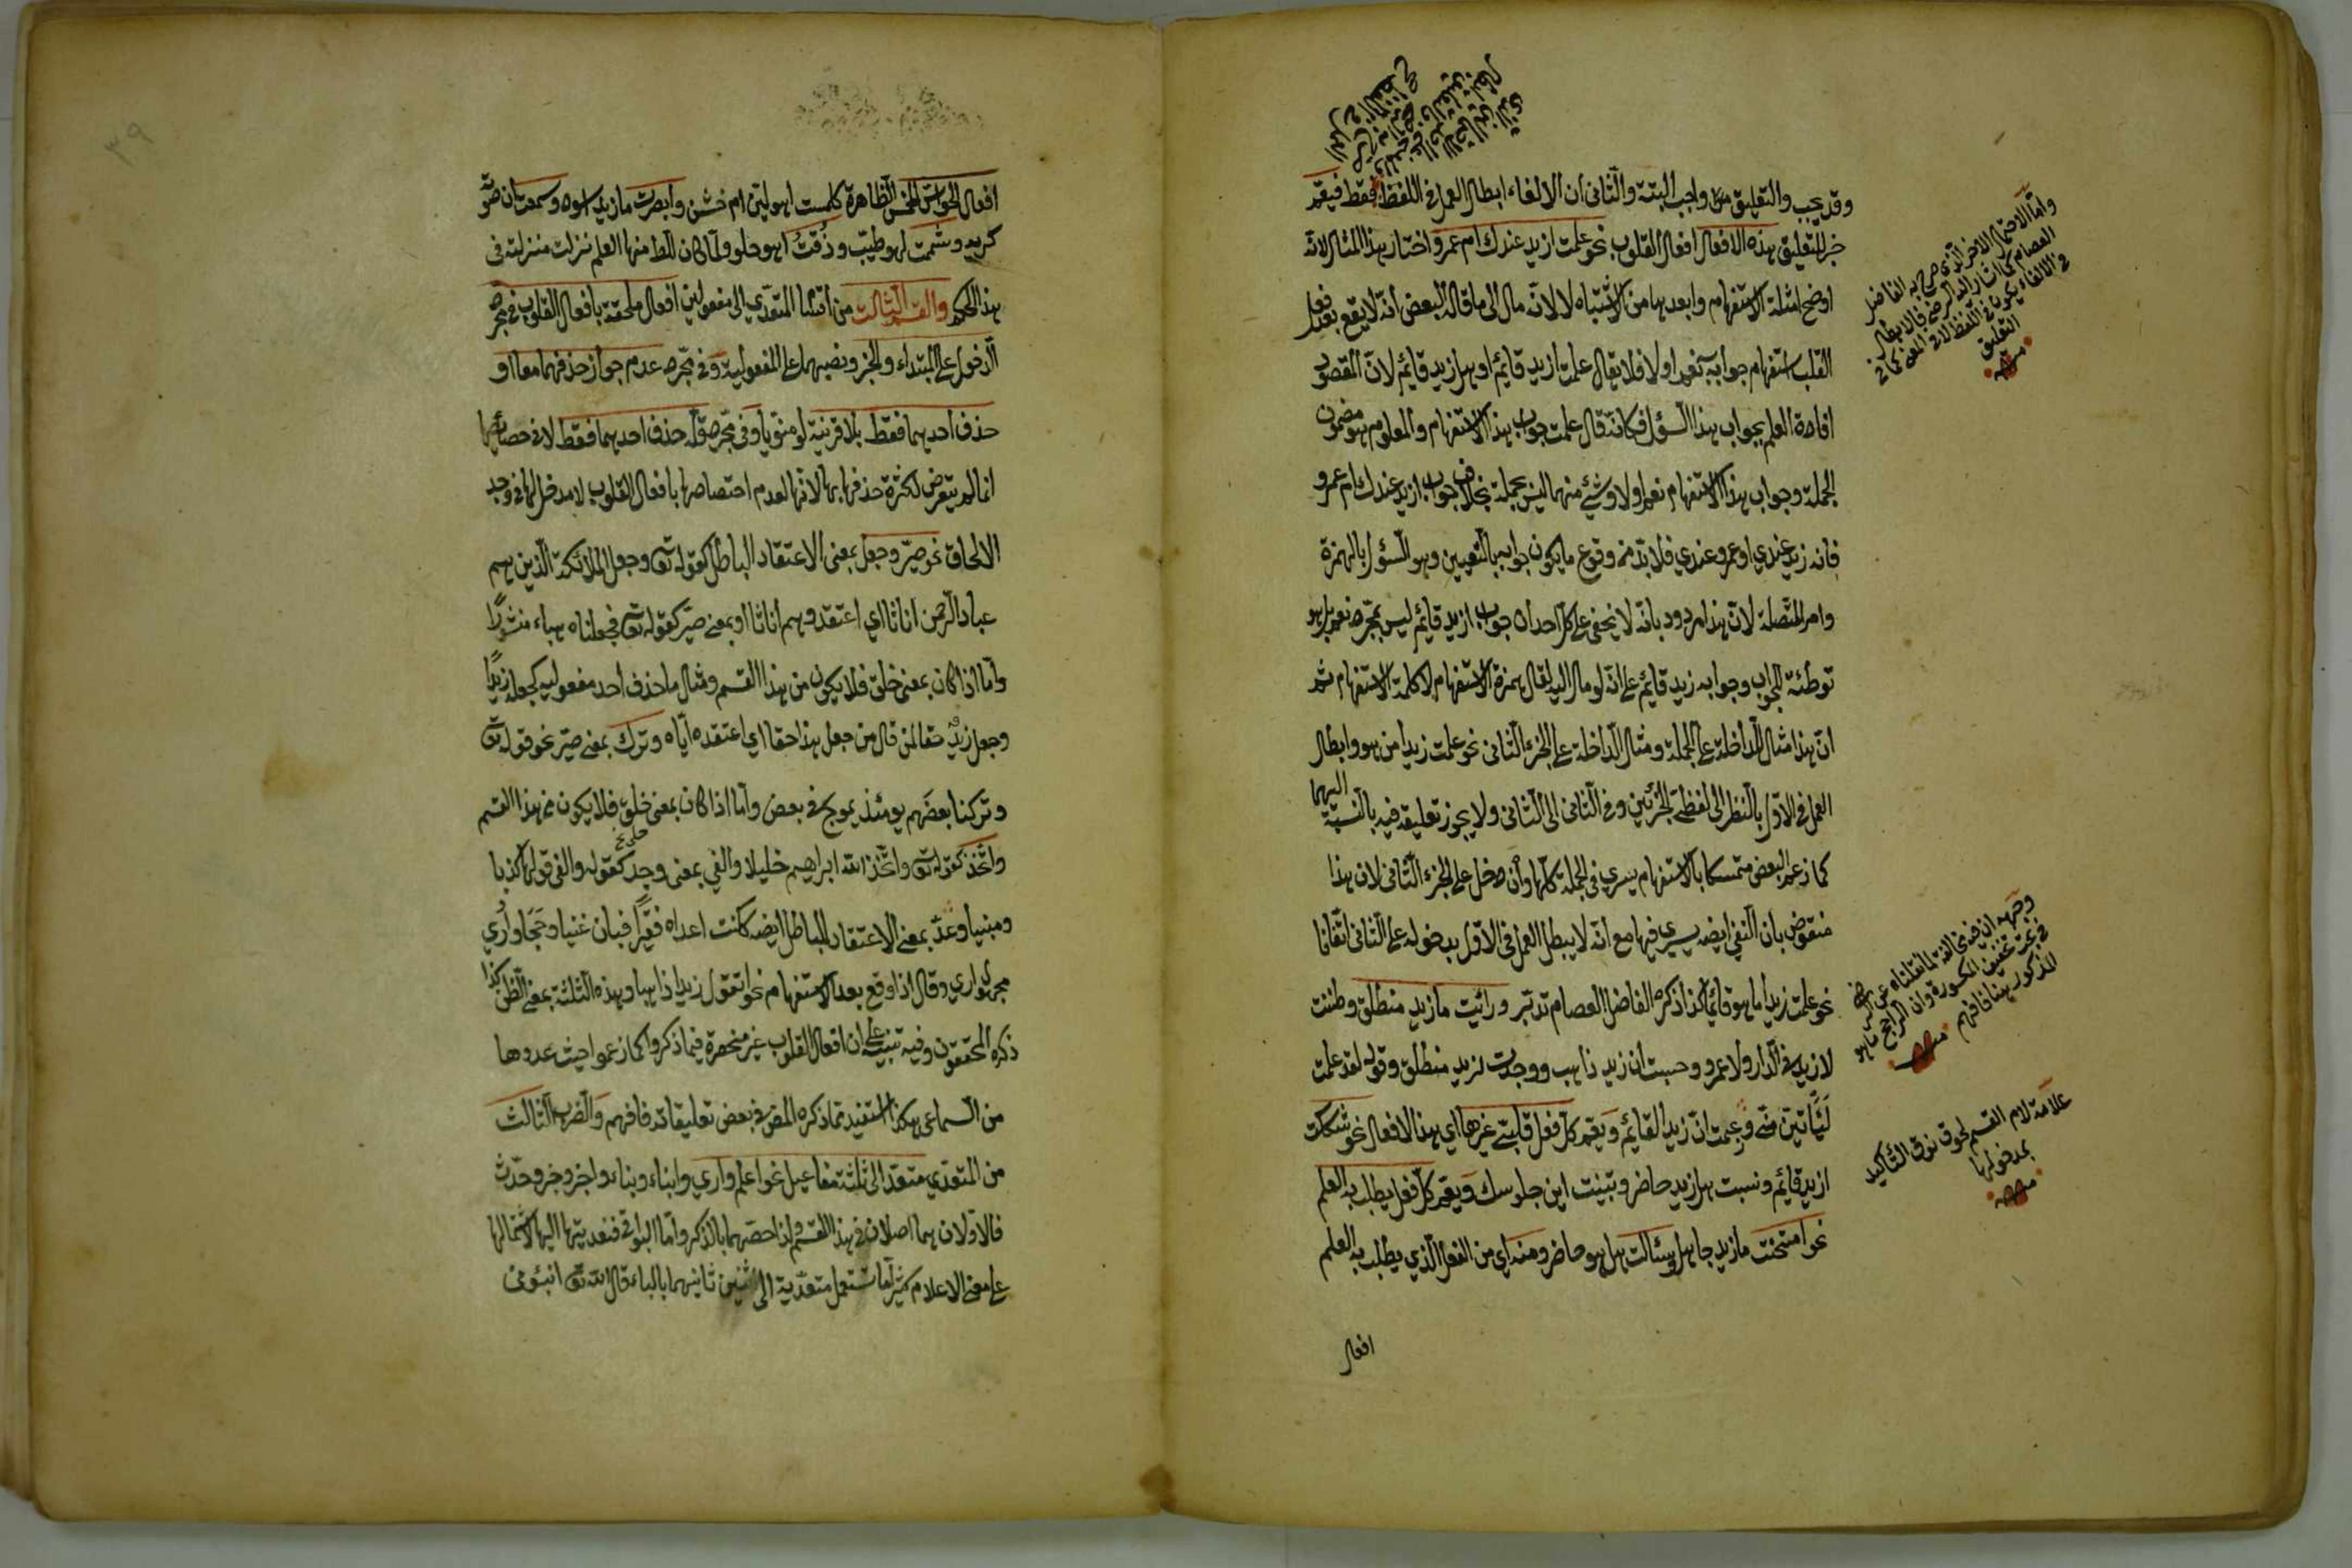 وقد يجب والتعليق واجب البتة والثانى ان الالغاء ابطال العمل فى اللفظ فقط فيقع
خبر التعليق بهذه الافعال افعال القلوب نحو علمت ازيد عندك ام عمرو واختار هذا المثال لانه
اوضح امثلة الاستفهام وابعدها من الاشتباه لا لانه مال الى ما قاله البعض انه لا يقع بعد فعل
القلب استفهام جوابه نعم او لا فلا يقال علمت ازيد قائم او هل زيد قائم لان المقصود
افادة العلم بجواب هذا السؤل فكانه قال علمت جواب هذا الاستفهام والمعلوم هو مضمون
الجملة وجواب هذا الاستفهام نعم او لا وشئ منهما ليس بجملة بخلاف جواب ازيد عندك ام عمرو
فانه زيد عندي او عمرو عندي فلا بد من وقوع ما يكون جوابه بالتعيين وهو السؤل بالهمزة
وام المتصلة لان هذا مردود بانه لا يخفى على كل احد ان جواب ازيد قائم ليس بمجرد نعم بل هو
توطئة للجواب وجوابه زيد قائم على انه لو مال اليه لقال همزة الاستفهام لا كلمة الاستفهام ثم
ان هذا مثال الداخلة على الجملة ومثال الداخلة على الجزء الثانى نحو علمت زيدا من هو وابطال
العمل فى الاول بالنظر الى لفظ الجزئين وفى الثانى الى الثانى ولا يجوز تعليقه فيه بالنسبة اليهما
كما زعم البعض متمسكا بالاستفهام يسري فى الجملة كلها وان دخل على الجزء الثانى لان هذا
منقوض بان النفي ايضه يسري فيها مع انه لا يبطل العمل فى الاول بدخوله على الثانى اتفاقا
نحو علمت زيدا ما هو قائما كذا ذكره الفاضل العصام تدبر ورأيت ما زيد منطلق وظننت
لا زيد فى الدار ولا عمرو وحسبت ان زيد ذاهب ووجدت لزيد منطلق وقوله لقد علمت
لتأتين منيتي وعلمت ان زيدا لقائم ويعم كل فعل قلبي غيرها اي هذه الافعال نحو شككت
ازيد قائم ونسيت هل زيد حاضر وتبينت اين جلوسك ويعم كل فعل يطلب به العلم
نحو امتحنت ما زيد جاهل وسئالت هل هو حاضر ومنه اي من الفعل الذي يطلب به العلم
افعال
واما الاحتمال الاخر الذي صرح به الفاضل
العصام كما اشار اليه الرضى فالابطال
فى الالغاء يكون فى اللفظ لا فى المعنى كما فى
التعليق
منه
وجهه ان فيه مخالفة لما نقلناه عن الرضى
المذكور هنا فافهم منه
علامة لام القسم لحوق نون التأكيد
بمدخولها
منه
٣٩
افعال الحواس الخمس الظاهرة كلمست اهو لين ام خشن وابصرت ما زيد اسود وسمعت ان صوت
كريه وشممت لهو طيب وذقت اهو حلو ولما كان المطلوب منها العلم نزلت منزلته فى
هذا الحكم والقسم الثالث من اقسام المتعدي الى مفعولين افعال ملحقة بافعال القلوب فى مجرد
الدخول على المبتداء والخبر ونصبهما على المفعولية وفى مجرد عدم جواز حذفهما معا او
حذف احدهما فقط بلا قرينة لو منويا وفى مجرد قلة حذف احدهما فقط لا فى خصائصها
انما لم يتعرض لكثرة حذفها بها لانها لعدم اختصاصها بافعال القلوب لا مدخل لها فى وجه
الالحاق نحو صير وجعل بمعنى الاعتقاد الباطل كقوله تع وجعلوا الملائكة الذين هم
عباد الرحمن اناثا اي اعتقدوهم اناثا او بمعنى صير كقوله تع فجعلناه هباء منثورا
واما اذا كان بمعنى خلق فلا يكون من هذا القسم ومثال ما حذف احد مفعوليه كجعله زيدا
وجعل زيد حقا لمن قال من جعل هذا حقا اي اعتقده اياه وترك بمعنى صير نحو قوله تع
وتركنا بعضهم يومئذ يموج فى بعض واما اذا كان بمعنى خلى فلا يكون من هذا القسم
واتخذ كقوله تع واتخذ الله ابراهيم خليلا والفي بمعنى وجد كقوله والفى قولها كذبا
ومينا وعد بمعنى الاعتقاد الباطل ايضه كانت اعداه فقيرا فبان غنيا وحجا واري
مجهول اري وقال اذا وقع بعد الاستفهام نحو اتقول زيدا ذاهبا وهذه الثلثة بمعنى الظن كذا
ذكره المحققون وفيه تنبيه على ان افعال القلوب غير منحصرة فيما ذكروا كما زعموا حيث عدوها
من السماعى هكذا استفيد مما ذكره المص فى بعض تعليقاته فافهم والضرب الثالث
من المتعدي متعد الى ثلثة مفاعيل نحو اعلم واري وانباء ونباء واخبر وخبر وحدث
فالاولان هما اصلان فى هذا القسم ولذا خصهما بالذكر واما البواقى فتعديتها اليها لاشتمالها
على معنى الاعلام كثيرا ما تستعمل متعدية الى اثنين ثانيهما بالباء قال الله تع انبئونى